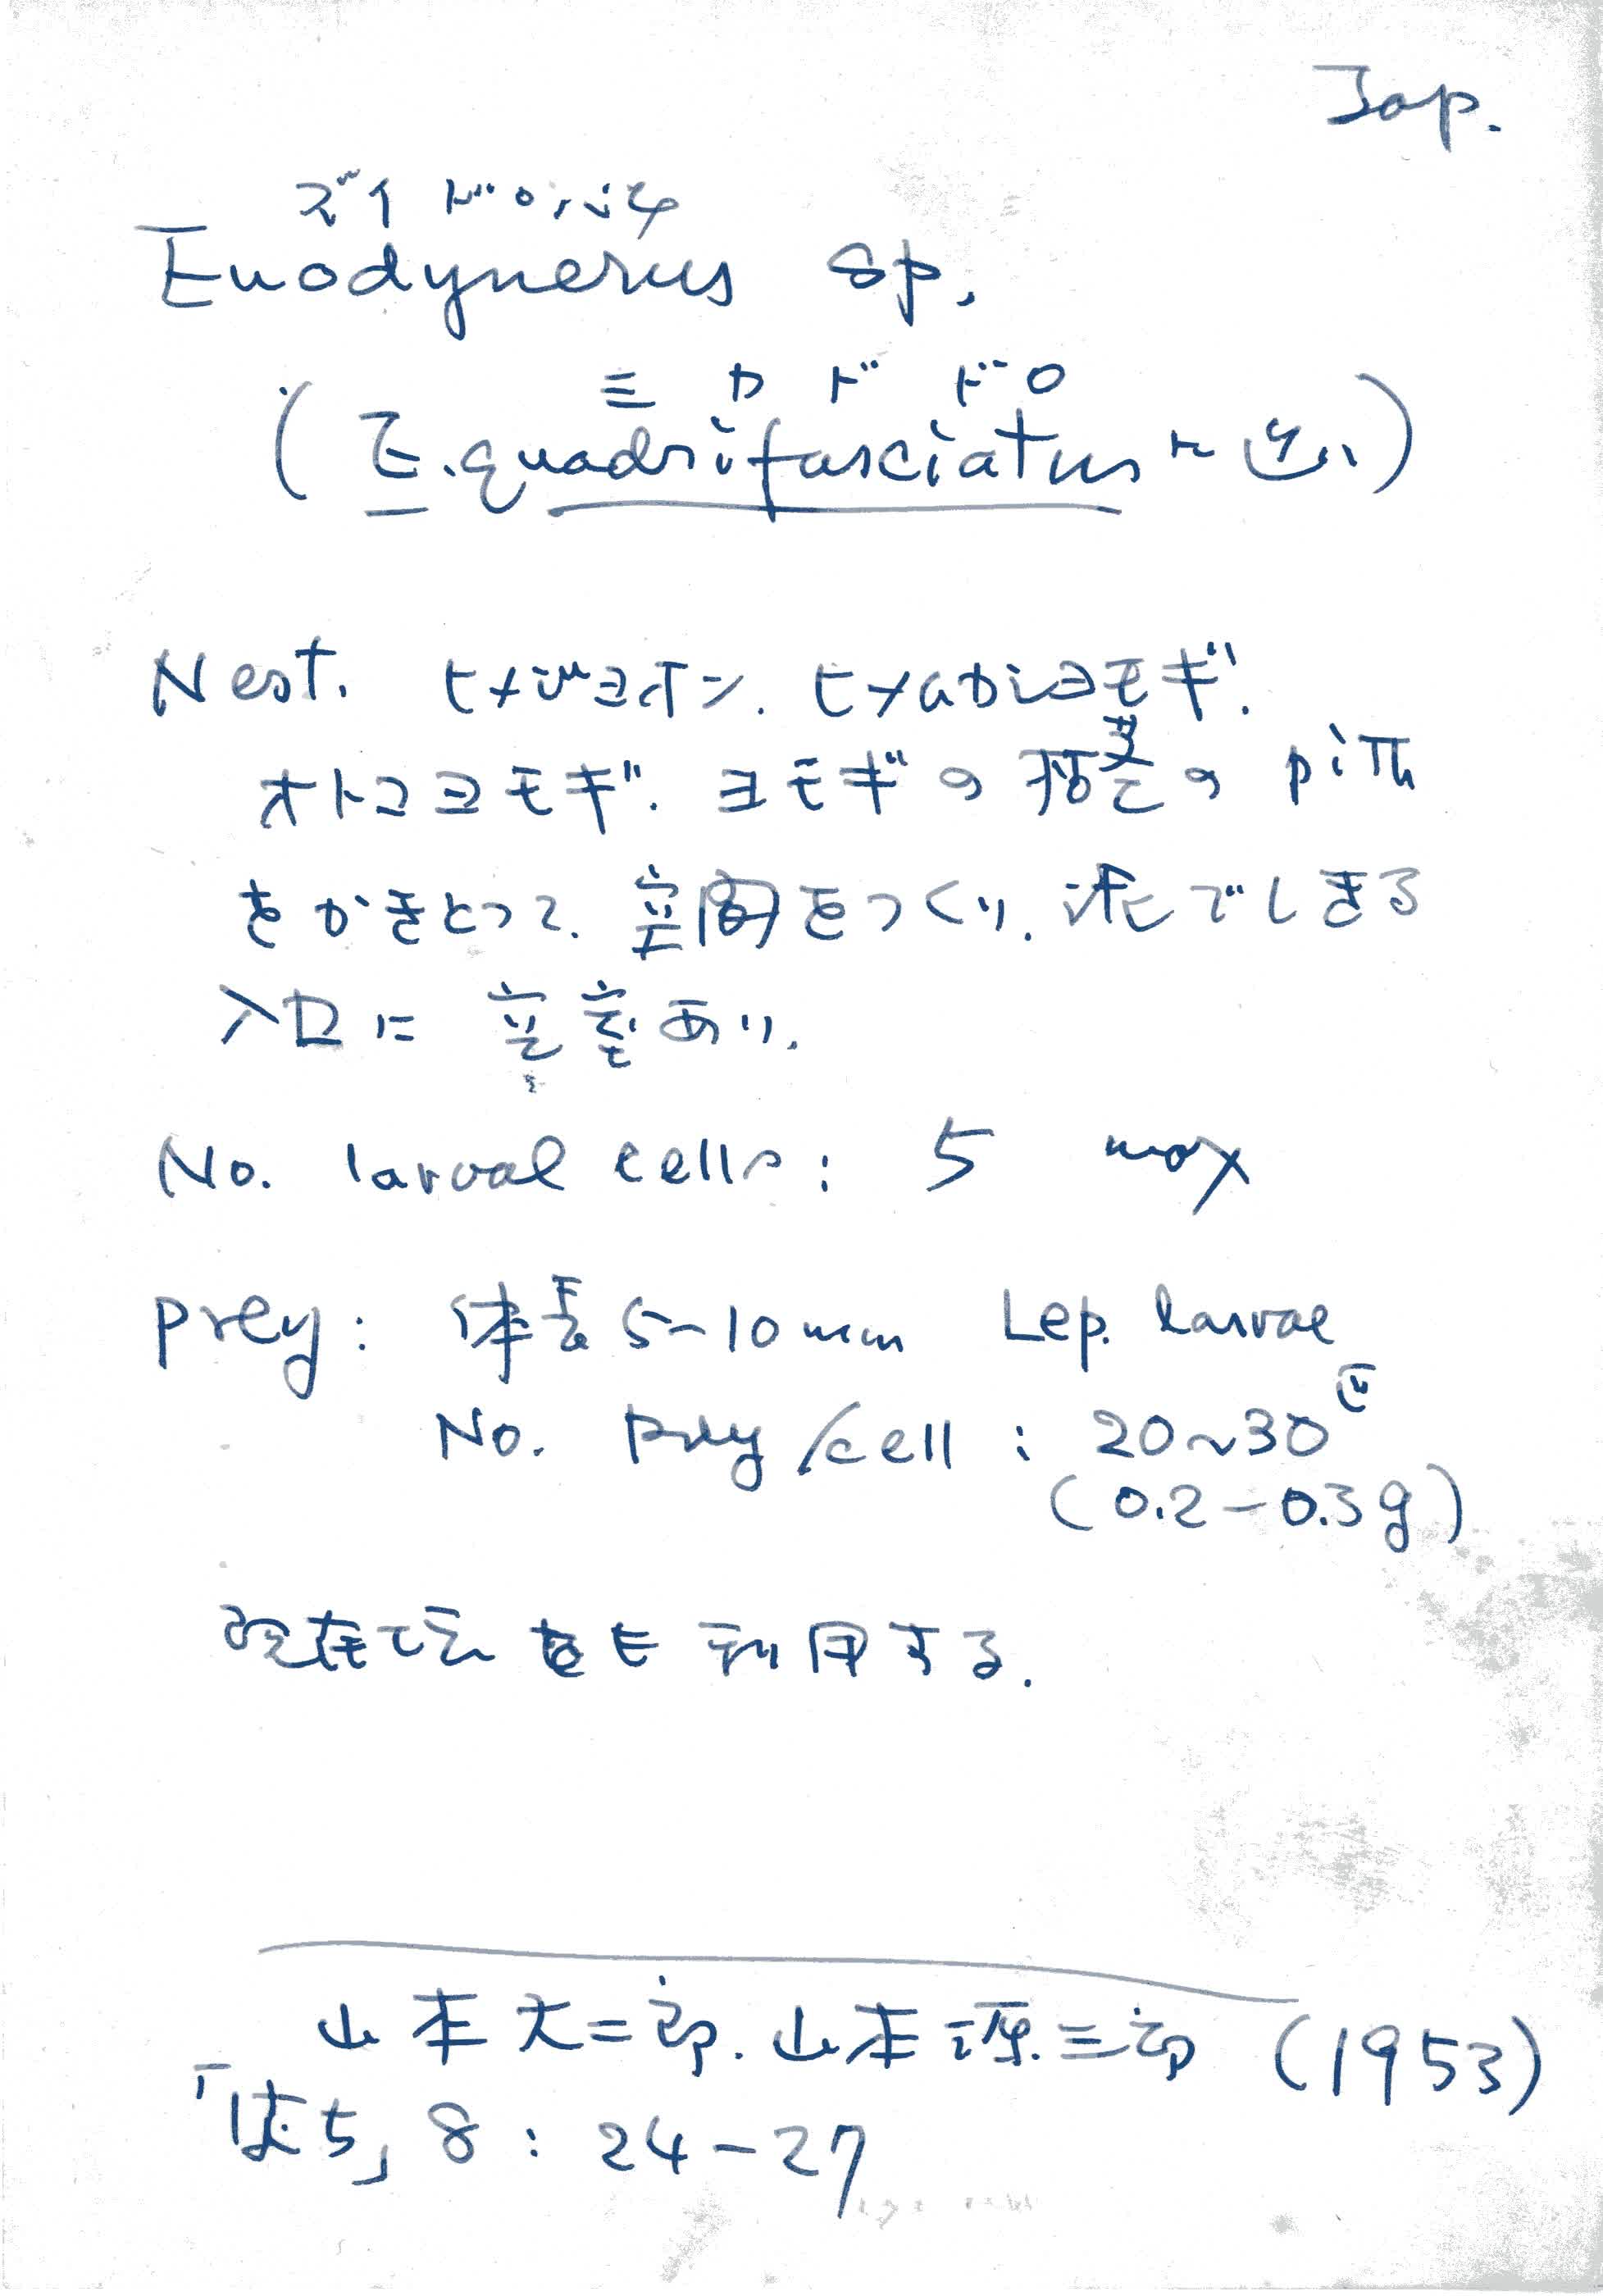 Jap.
ズイドロバチ
Euodynerus sp.
ミカドドロ
(E. quadrifasciatus に近い)
Nest. ヒメジョオン. ヒメムカシヨモギ.
オトコヨモギ. ヨモギの枯茎の pith
をかきとって. 空間をつくり. 泥でしきる
入口に空室あり.
No. larval cells : 5 max
Prey : 体長 5~10 mm Lep. larvae
No. Prey / cell : 20~30匹
(0.2-0.3g)
をも利用する.
山本大二郎. 山本源三郎 (1953)
「はち」 8 : 24-27